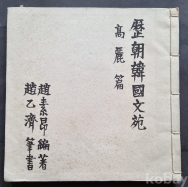 歷朝韓國文苑
高麗篇
趙素昂 編著
趙乙濟 筆書
kobay